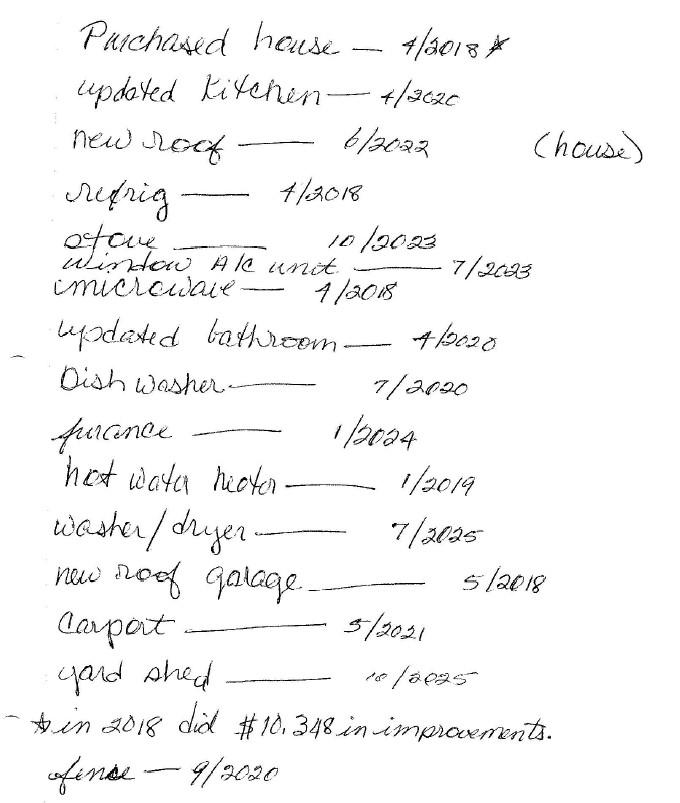 Purchased house — 4/2018 *
updated kitchen — 4/2020
new roof — 6/2022 (house)
refrig — 4/2018
stove — 10/2023
window A/C unit — 7/2023
microwave — 4/2018
updated bathroom — 4/2020
Dish washer — 7/2020
furance — 1/2024
hot water heater — 1/2019
washer/dryer — 7/2025
new roof garage — 5/2018
Carport — 5/2021
yard shed — 10/2025
* in 2018 did $10,348 in improvements.
fence — 9/2020